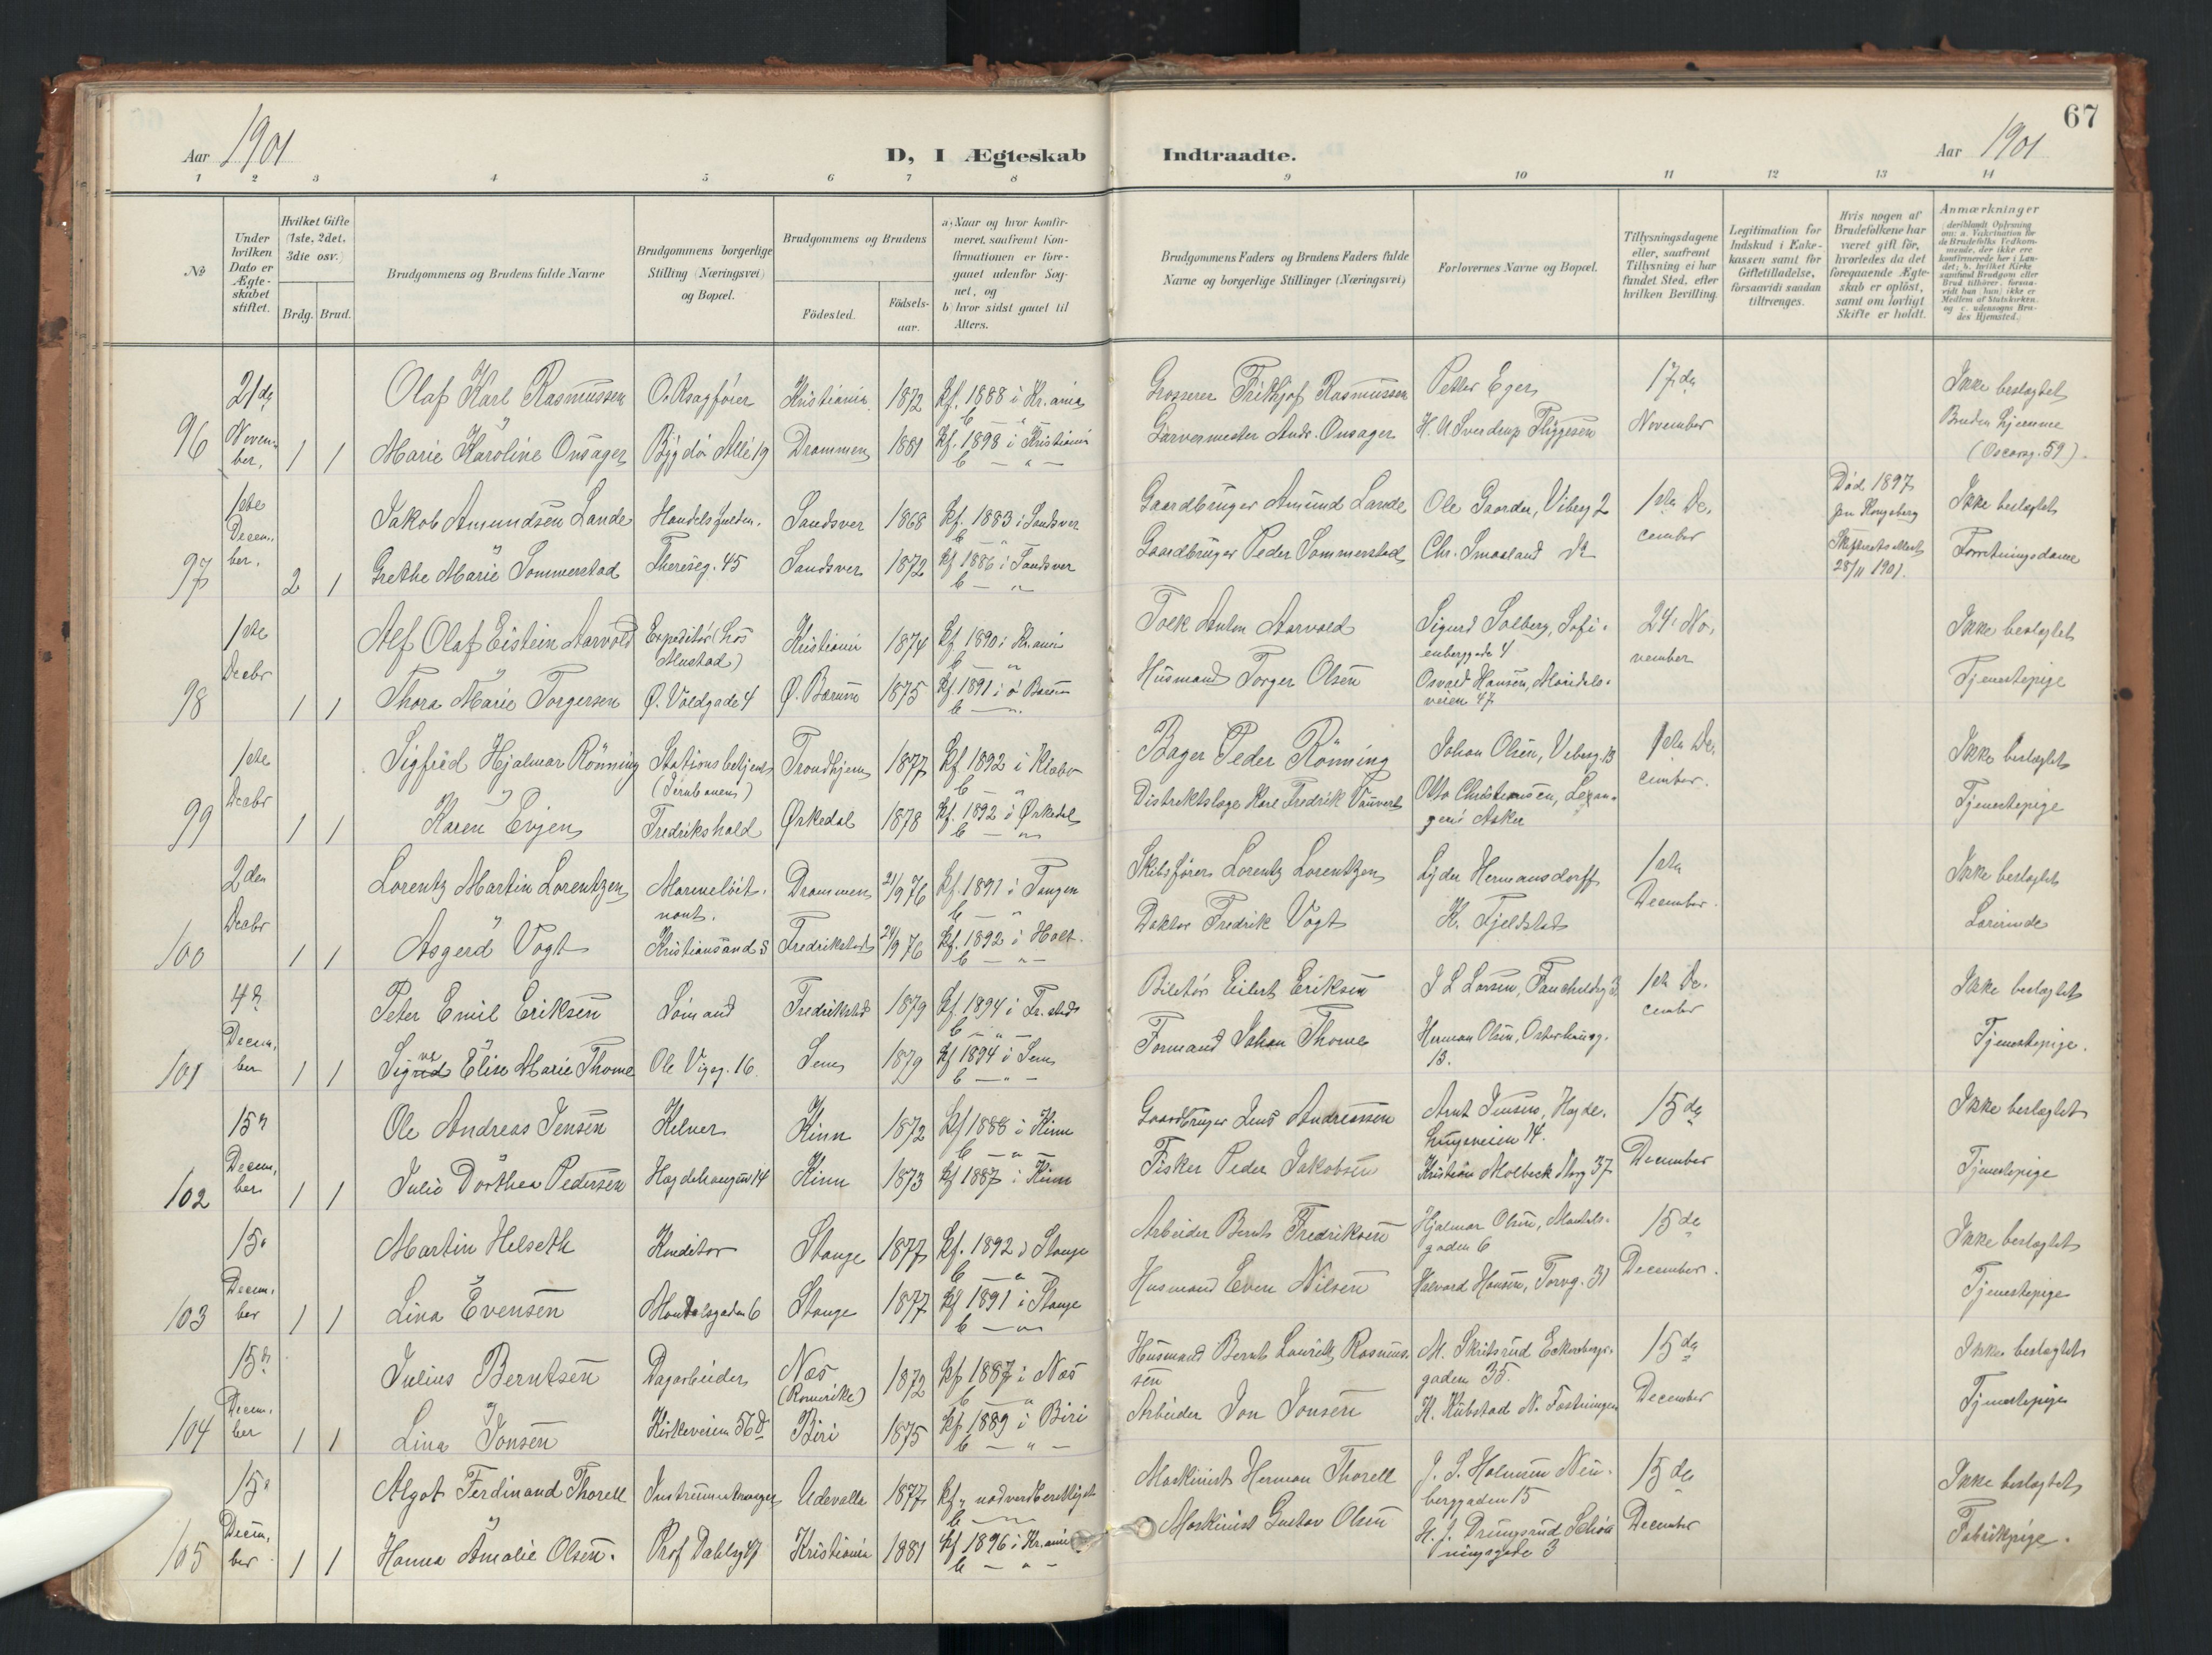 67
Aar 1901
D, I Ægteskab Indtraadte.
Aar 1901
1 2 3 4 5 6 7 8 9 10 11 12 13 14
№
Under hvilken Dato er Ægteskabet stiftet.
Hvilket Gifte (1ste, 2det, 3die osv.)
Brdg. Brud.
Brudgommens og Brudens fulde Navne
Brudgommens borgerlige Stilling (Næringsvei) og Bopæl.
Brudgommens og Brudens
Födested.
Födsels-aar.
a) Naar og hvor konfirmeret, saafremt Konfirmationen er foregaaet udenfor Sognet, og
b) hvor sidst gaaet til Alters.
Brudgommens Faders og Brudens Faders fulde Navne og borgerlige Stillinger (Næringsvei)
Forlovernes Navne og Bopæl.
Tillysningsdagene eller, saafremt Tillysning ei har fundet Sted, efter hvilken Bevilling.
Legitimation for Indskud i Enkekassen samt for Giftetilladelse, forsaavidt saadan tiltrænges.
Hvis nogen af Brudefolkene har været gift för, hvorledes da det foregaaende Ægteskab er oplöst, samt om lovligt Skifte er holdt.
Anmærkninger
96 21de November, 1 1
Olaf Karl Rasmussen O.Rsagfører Kristiania 1872 Kf. 1888 i Kr.ania
Grosserer Frithjof Rasmussen Petter Eger 17de Ikke beslægtet
Marie Karoline Onsager Bygdö Allé 19 Drammen 1881 Kf. 1898 i Kristiania
Garvermester Andr. Onsager H. U. Sverdrup Thygesen November Bruden hjemme
(Oscarsg. 59).
97 1ste December. 2 1
Jakob Amundsen Lande Handelsfuldm. Sandsver 1868 Kf. 1883 i Sandsver
Gaardbruger Amund Lande Ole Gaarder, Vibeg 2 1ste De- Død 1897 Ikke beslægtet
Grethe Marie Sommerstad Theresg. 45 Sandsver 1872 Kf 1886 i Sandsver
Gaardbruger Peder Sommerstad Chr. Smaaland do cember 28/11 1901. Forretningsdame
98 1ste Decbr 1 1
Alf Olaf Eistein Aarvold Expeditør (hos Mustad) Kristiania 1874 Kf. 1890 i Kr.ania
Tolk Anton Aarvold Sigurd Solberg, Sofienberggade 4 24. No- Ikke beslægtet
Thora Marie Torgersen Ø. Voldgade 4 Ø. Bærum 1875 Kf. 1891 i ø Bærum
Husmand Torger Olsen Osvald Hansen, Maridalsveien 47 vember Tjenestepige
99 1ste Decbr 1 1
Sigfred Hjalmar Rönning Stationsbetjent (Jernbanen) Trondhjem 1877 Kf. 1892 i Klæbo
Bager Peder Rönning Johan Olsen, Vibeg. 13 1ste De- Ikke beslægtet
Karen Evjen Fredrikshald Ørkedal 1878 Kf. 1892 i Ørkedal
Distriktslæge Karl Fredrik Otto Christensen, Asker cember. Tjenestepige
100 2den Decbr 1 1
Lorentz Martin Lorentzen Marineløitnant. Drammen 21/9 76 Kf. 1891 i Tangen
Skibsfører Lorentz Lorentzen Lyder Hermansdorff 1ste Ikke beslægtet
Asgerd Vogt Kristiansand S Fredrikstad 24/9 76 Kf. 1892 i Holt.
Doktor Fredrik Vogt K. Fjeldstad December. Lærerinde
101 4de December 1 1
Peter Emil Eriksen Sømand Fredrikstad 1879 Kf. 1894 i Fr.stad
Eilert Eriksen J L Larsen, 1ste De- Ikke beslægtet
Signe Elise Marie Thome Ole Vigsg. 16. Sem 1879 Kf 1894 i Sem
Formand Johan Thome Herman Olsen, Osterhausg. 13. cember Tjenestepige.
102 15de December 1 1
Ole Andreas Jensen Kelner Kinn 1872 Kf 1888 i Kinn
Gaardbruger Jens Andreassen Arnt Jensen, Hegdehaugsveien 14. 15de Ikke beslægtet
Julie Dorthea Pedersen Hegdehaugsv 14 Kinn 1873 Kf 1887 i Kinn
Fisker Peder Jakobsen Kristian Molbeck Storg 37 December Tjenestepige
103 15de December 1 1
Martin Helseth Konditor Stange 1877 Kf. 1892 i Stange
Arbeider Bernt Fredriksen Hjalmar Olsen, Mandalsgaden 6 15de Ikke beslægtet
Lina Evensen Mandalsgaden 6 Stange 1877 Kf 1891 i Stange
Husmand Even Nilsen Halvard Hansen, Torvg. 31 December. Tjenestepige
104 15de December 1 1
Julius Berntsen Dagarbeider Næs (Romerike) 1872 Kf 1887 i Næs
Husmand Bernt Laurits Rasmussen M. Skibsrud Eckersbergsgaden 35. 15de Ikke beslægtet
Lina Jonsen Kirkeveien 56 D Biri 1875 Kf 1889 i Biri
Arbeider Jon Jonsen K. Kubstad December Tjenestepige
105 15de December 1 1
Algot Ferdinand Thorell Instrumentmager Udevalla 1877 Kf., nadverdberettiget
Maskinist Herman Thorell J. S. Halvorsen Neuberggaden 15 15de Ikke beslægtet
Hanna Amalie Olsen. Prof Dahlsg 47 Kristiania 1881 Kf 1896 i Kr.ania
Maskinist Gustav Olsen H. J. Drengsrud Schöningsgade 3 December Fabrikpige.